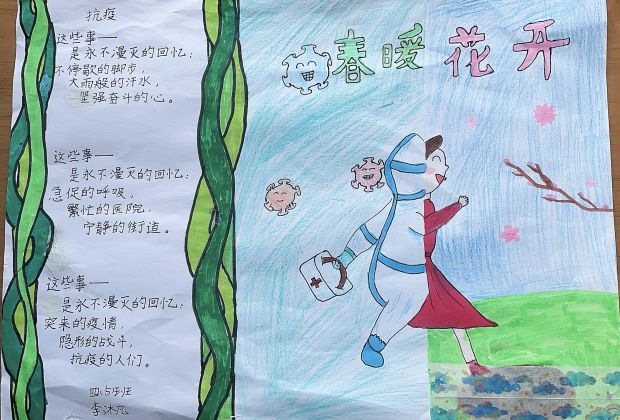 抗疫
这些事——
是永不漫灭的回忆：
不停歇的脚步，
大雨般的汗水，
坚强奋斗的心。
这些事——
是永不漫灭的回忆：
急促的呼吸，
繁忙的医院，
宁静的街道。
这些事——
是永不漫灭的回忆：
突来的疫情，
隐形的战斗；
抗疫的人们。
李沐凡
春暖花开